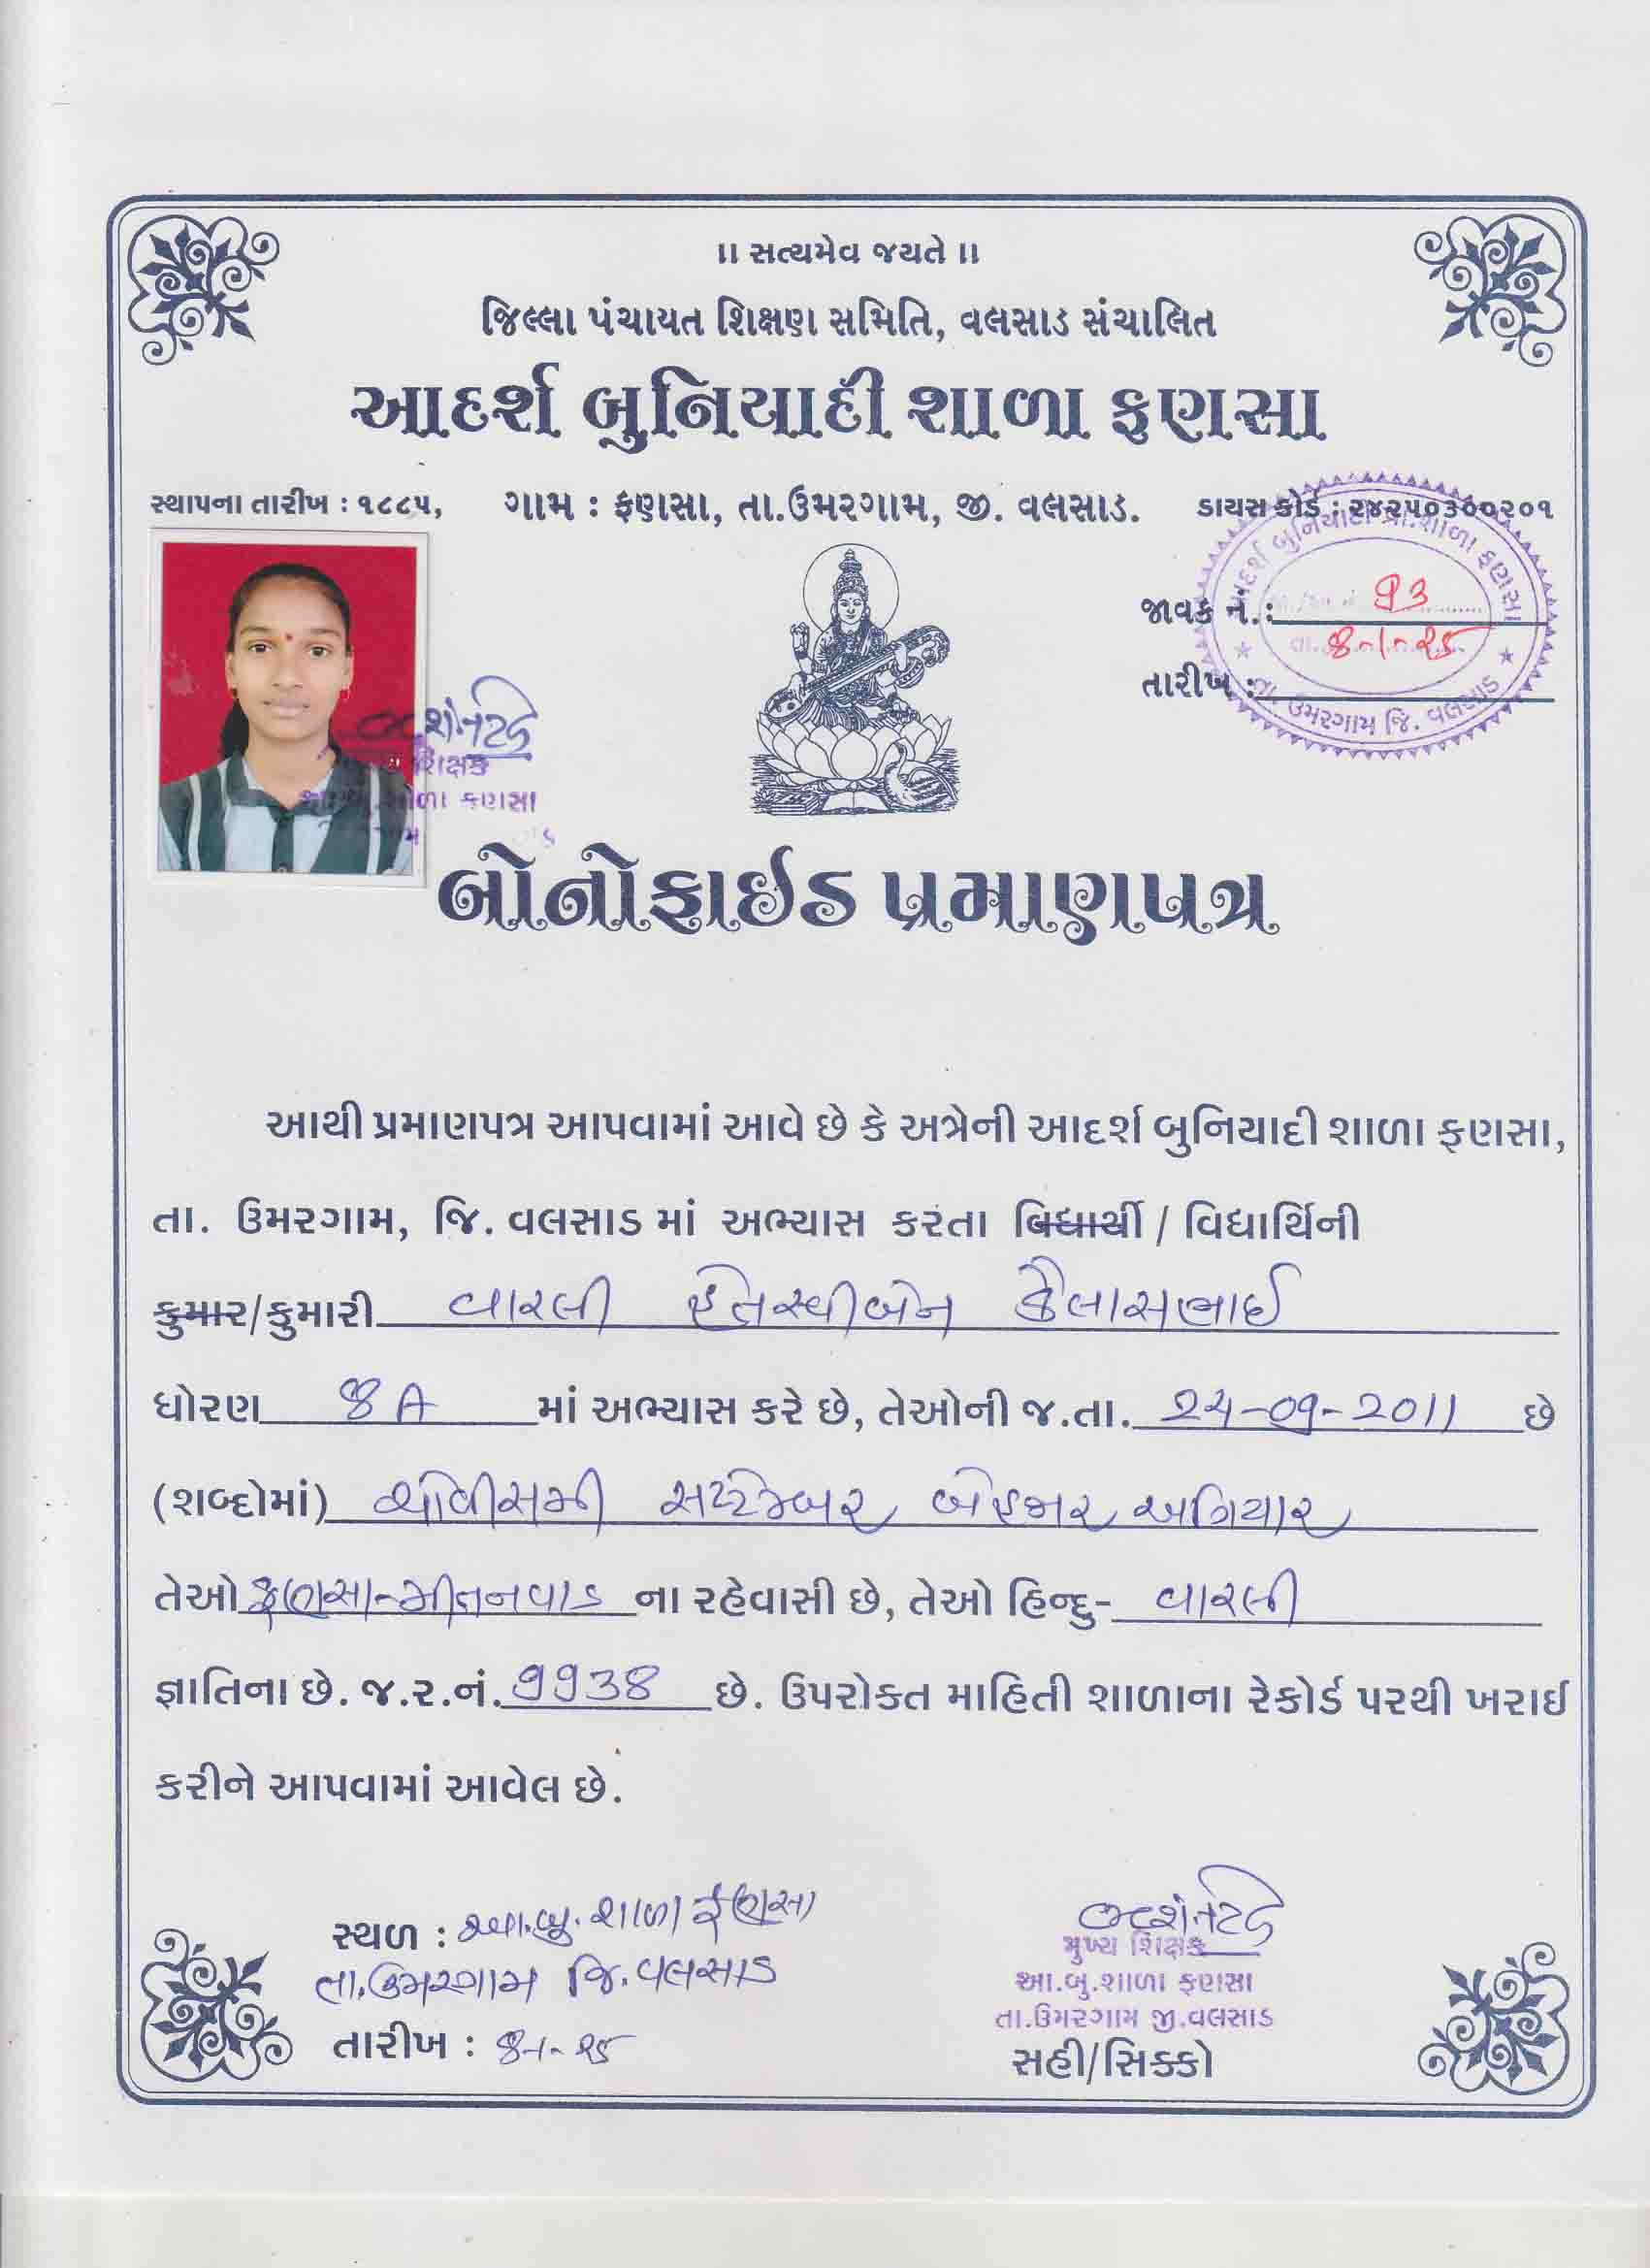 ।। સત્યમેવ જયતે ।।
જિલ્લા પંચાયત શિક્ષણ સમિતિ, વલસાડ સંચાલિત
આદર્શ બુનિયાદી શાળા ફણસા
સ્થાપના તારીખ : ૧૮૮૫, ગામ : ફણસા, તા.ઉમરગામ, જી. વલસાડ. ડાયસ કોડ : ૨૪૨૫૦૩૦૦૨૦૧
જાવક નં.: ૧૩
તારીખ : ૪-૧-૨૫
શિક્ષક
શાળા ફણસા
બોનોફાઈડ પ્રમાણપત્ર
આથી પ્રમાણપત્ર આપવામાં આવે છે કે અત્રેની આદર્શ બુનિયાદી શાળા ફણસા,
તા. ઉમરગામ, જિ. વલસાડ માં અભ્યાસ કરતા વિદ્યાર્થી / વિદ્યાર્થિની
કુમાર/કુમારી વારલી હેતસ્વીબેન કૈલાસભાઈ
ધોરણ 8 A માં અભ્યાસ કરે છે, તેઓની જ.તા. 24-09-2011 છે
(શબ્દોમાં) ચોવીસમી સપ્ટેમ્બર બેહજાર અગિયાર
તેઓ ફણસા-મીતનવાડ ના રહેવાસી છે, તેઓ હિન્દુ- વારલી
જ્ઞાતિના છે. જ.ર.નં. ૧૧૩૪ છે. ઉપરોક્ત માહિતી શાળાના રેકોર્ડ પરથી ખરાઈ
કરીને આપવામાં આવેલ છે.
સ્થળ : આ.બુ. શાળા ફણસા
તા.ઉમરગામ જિ.વલસાડ
તારીખ : ૪-૧-૨૫
મુખ્ય શિક્ષક
આ.બુ.શાળા ફણસા
તા.ઉમરગામ જી.વલસાડ
સહી/સિક્કો